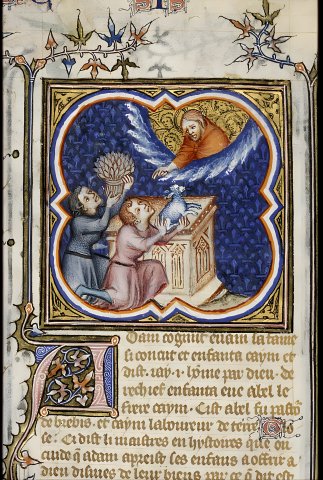 Adam cognut euam sa fame
si conciut et enfanta caym et
dist. iay. i. home par dieu. de
rechief enfanta eue abel le
frere caym. Cist abel fu pastor
de brebis. et caym laboureur de terre
se. Ci dist li maistres en hystoires que on
cuide que adam aprist ses enfans a offrir a
dieu dismes de leur biens par ce que dit est